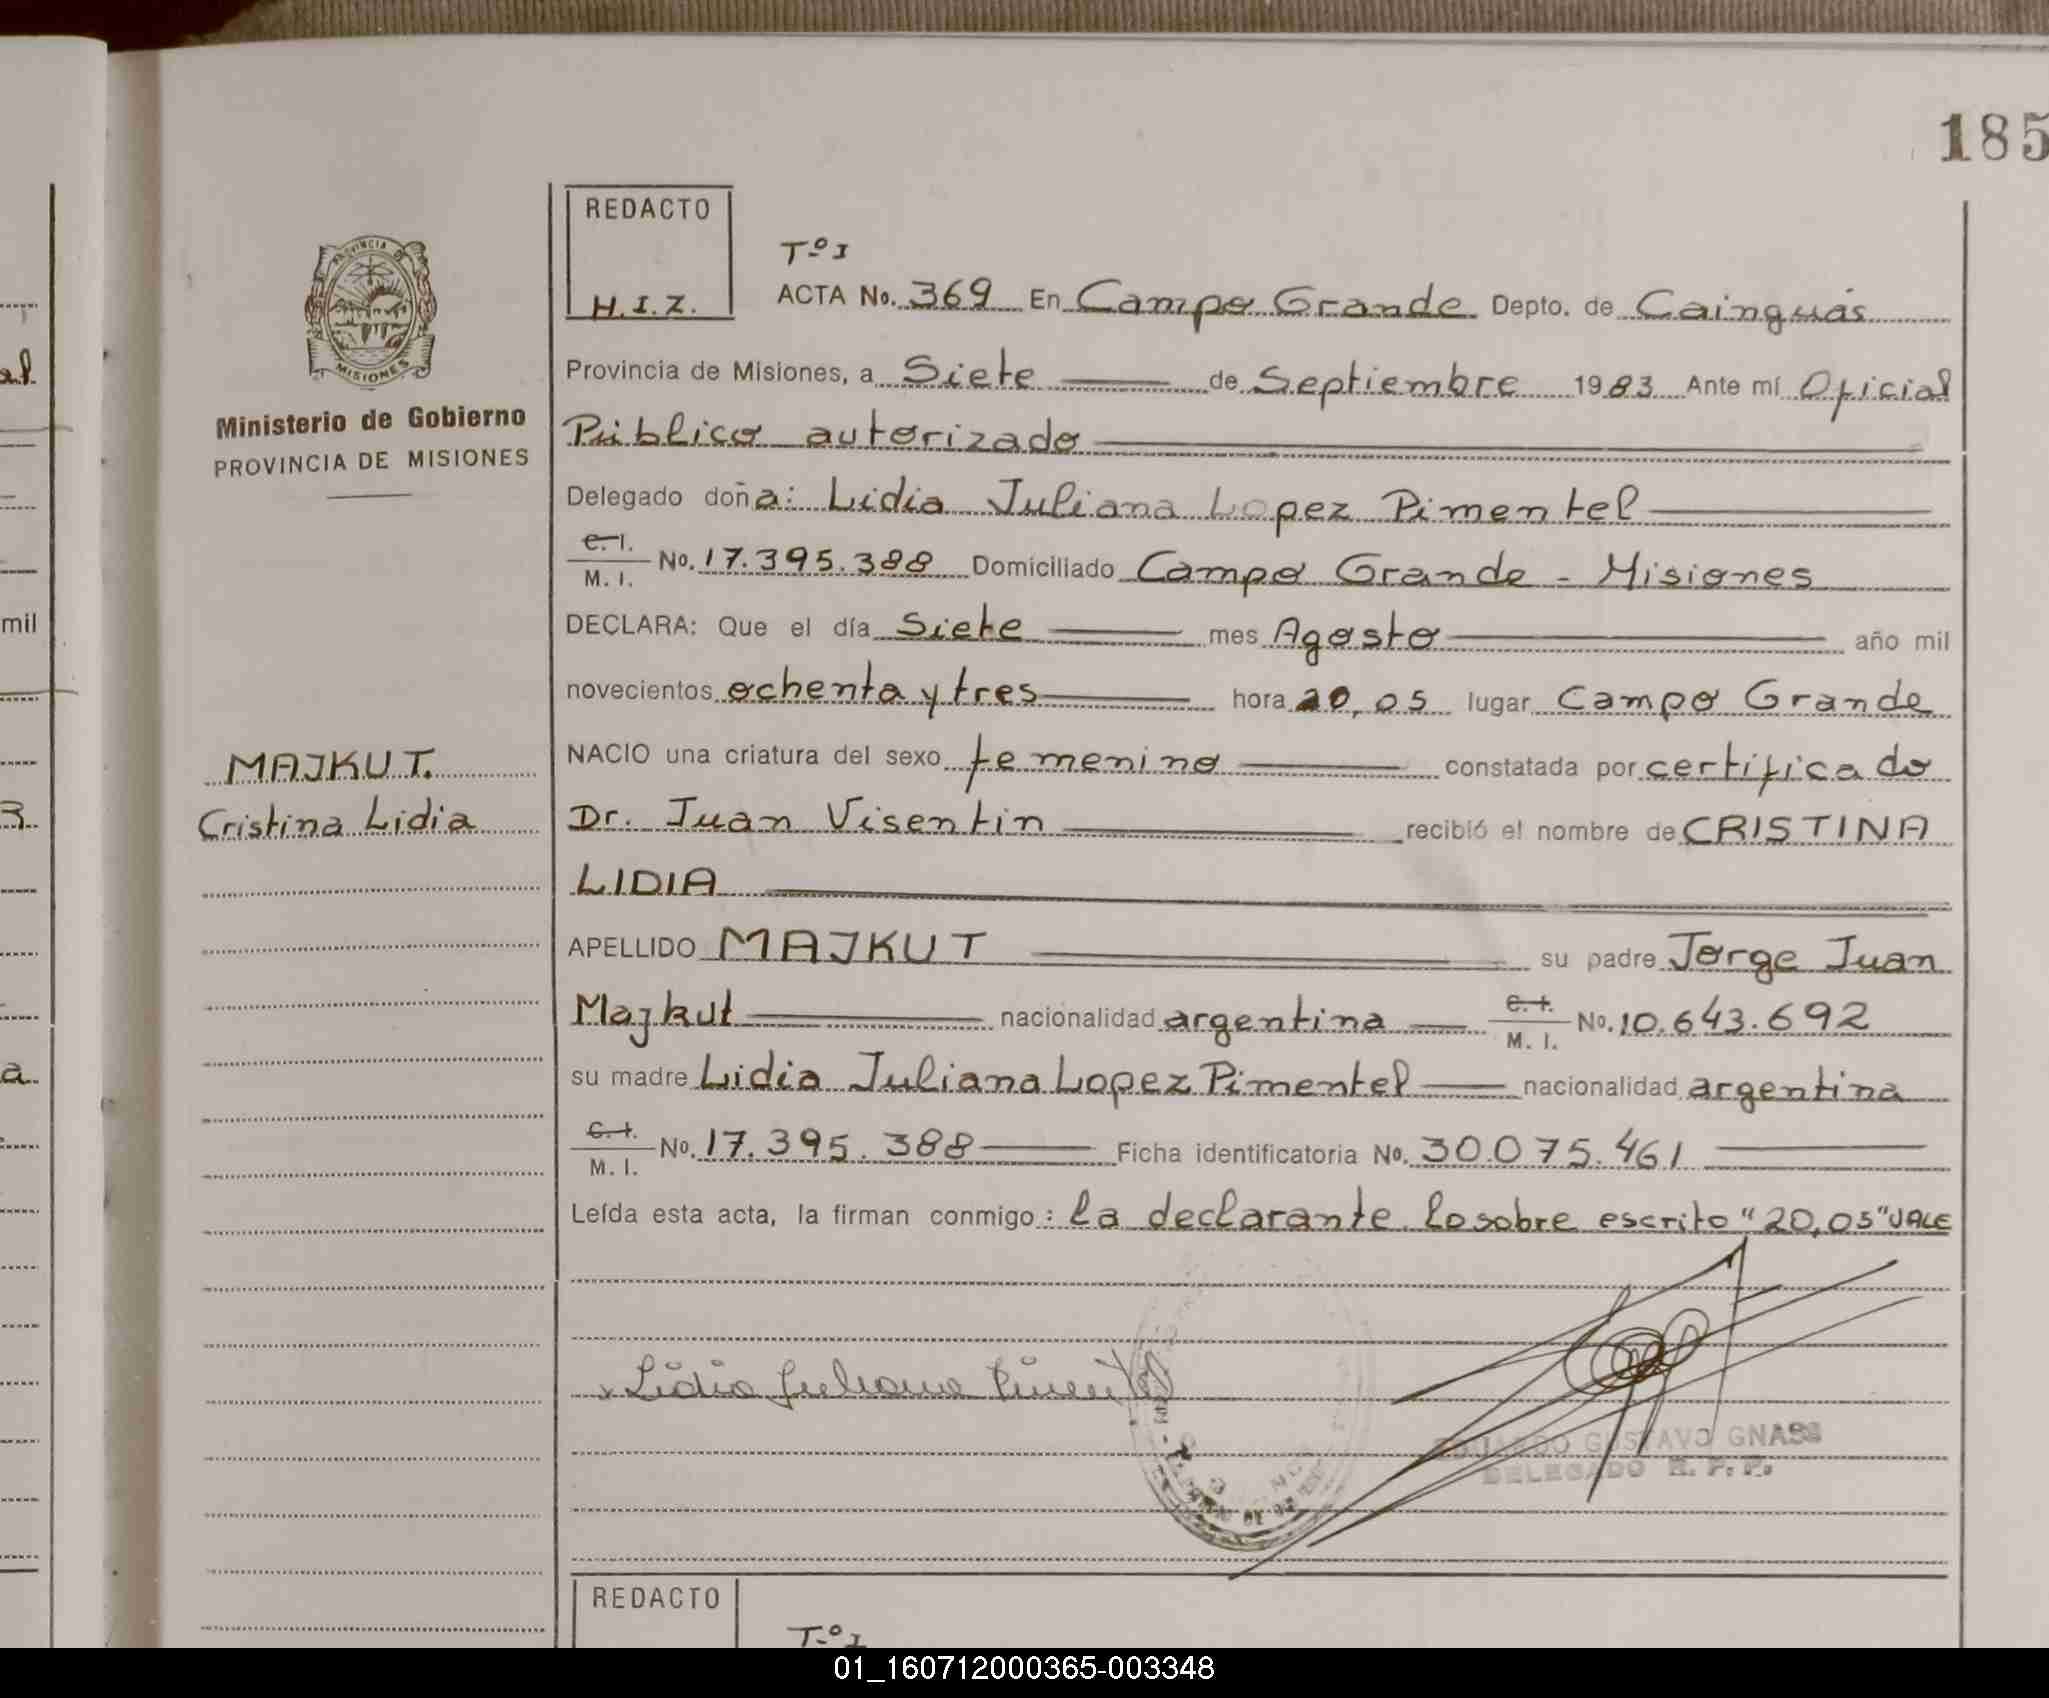 185
REDACTO
H.I.Z.
Tº I
ACTA No. 369 En Campo Grande Depto. de Cainguás
PROVINCIA DE MISIONES
Ministerio de Gobierno
PROVINCIA DE MISIONES
Provincia de Misiones, a Siete de Septiembre 1983 Ante mí Oficial
Público autorizado
Delegado doña: Lidia Juliana Lopez Pimentel
C. I.
M. I. No. 17.395.388 Domiciliado Campo Grande - Misiones
DECLARA: Que el día Siete mes Agosto año mil
novecientos ochenta y tres hora 20,05 lugar Campo Grande
NACIO una criatura del sexo femenino constatada por certificado
Dr. Juan Visentin recibió el nombre de CRISTINA
LIDIA
MAJKUT.
Cristina Lidia
APELLIDO MAJKUT su padre Jorge Juan
Majkut nacionalidad argentina C. I. M. I. No. 10.643.692
su madre Lidia Juliana Lopez Pimentel nacionalidad argentina
C. I.
M. I. No. 17.395.388 Ficha identificatoria No. 30.075.461
Leída esta acta, la firman conmigo: la declarante lo sobre escrito "20,05" VALE
Lidia Juliana Pimentel
EDUARDO GUSTAVO GNASS
DELEGADO R. P. P.
REDACTO
Tº I
al
mil
a
01_160712000365-003348